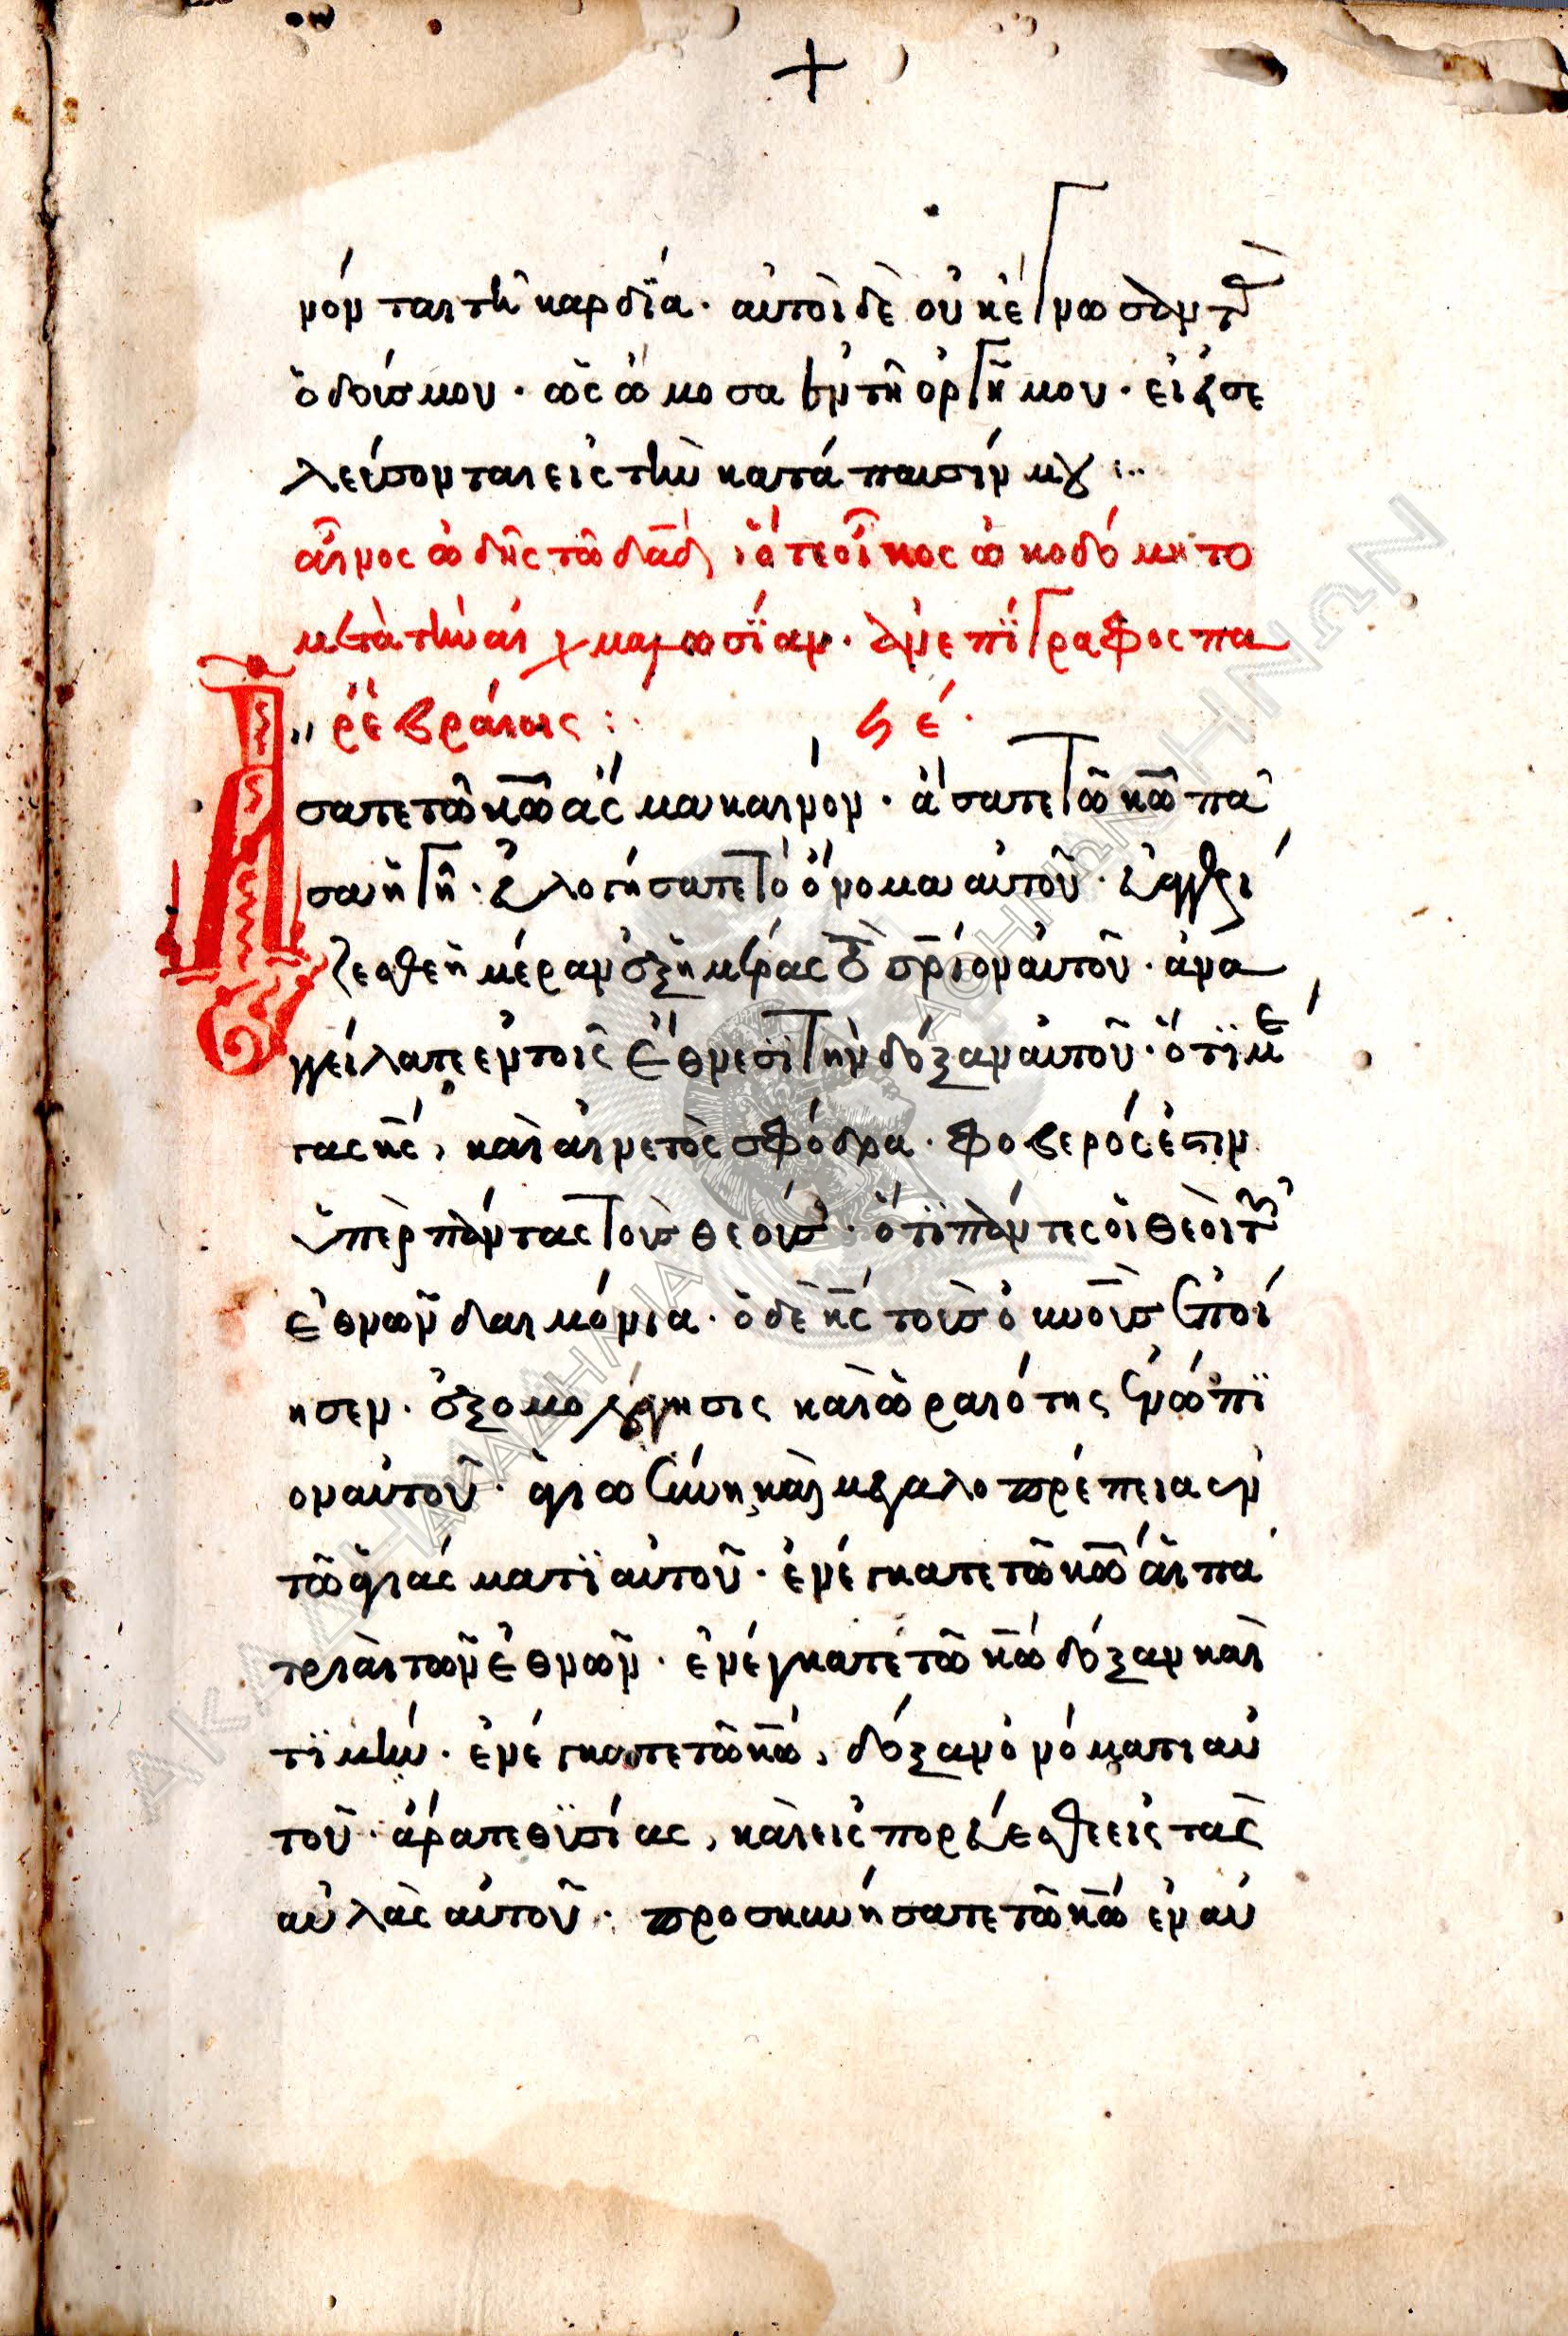 +
νόνται τῆ καρδΐα· αὐτοὶ δὲ οὐκ ἔγνωσαν τ(ὰς)
ὁδούς μου· ὡς ὤμοσα ἐν τῆ ὀργῆ μου· εἰ εἰσε
λεύσονται εἰς τὴν κατάπαυσίν μου :··
αἶνος ὠδῆς τῶ δαδ, ὅτε ὁ οἶκος ὠκοδόμητο
μετὰ τὴν αἰχμαλωσΐαν· ἀνεπΐγραφος πα
ρ' ἑβραίοις : ϟε·
Ἄσατε τῶ κω ἆσμα καινόν· ἄσατε τῶ κω πᾶ
σα ἡ γῆ· εὐλογήσατε τὸ ὄνομα αὐτοῦ· εὐαγγελί
ζεσθε ἡμέραν ἐξ ἡμέρας τὸ σριον αὐτοῦ· ἀνα
γγείλατε εν τοῖς ἔθνεσϊ τὴν δόξαν αὐτοῦ· ὅτϊ μέ
γας κς, καὶ αἰνετὸς σφόδρα· φοβερός ἐστιν
ὑπὲρ πάντας τοὺς θεούς· ὅτϊ πάντες οἱ θεοὶ τῶν
ἐθνῶν δαιμόνια· ὁ δὲ κς τοὺς οὐνοὺς ἐποί
ησεν· ἐξομολόγησις καὶ ὡραιότης ἐνώπϊ
ον αὐτοῦ· ἁγιωσύνη καὶ μεγαλοπρέπεια ἐν
τῶ ἁγιάσματϊ αὐτοῦ· ἐνέγκατε τῶ κω αἱ πα
τριαὶ τῶν ἐθνῶν· ἐνέγκατε τῶ κω δόξαν καὶ
τϊμήν· ἐνέγκατε τῶ κω, δόξαν ὀνόματι αὐ
τοῦ· ἄρατε θϋσίας, καὶ εἰσπορεύεσθε εἰς τὰς
αὐλὰς αὐτοῦ· προσκυνήσατε τῶ κω ἐν αὐ